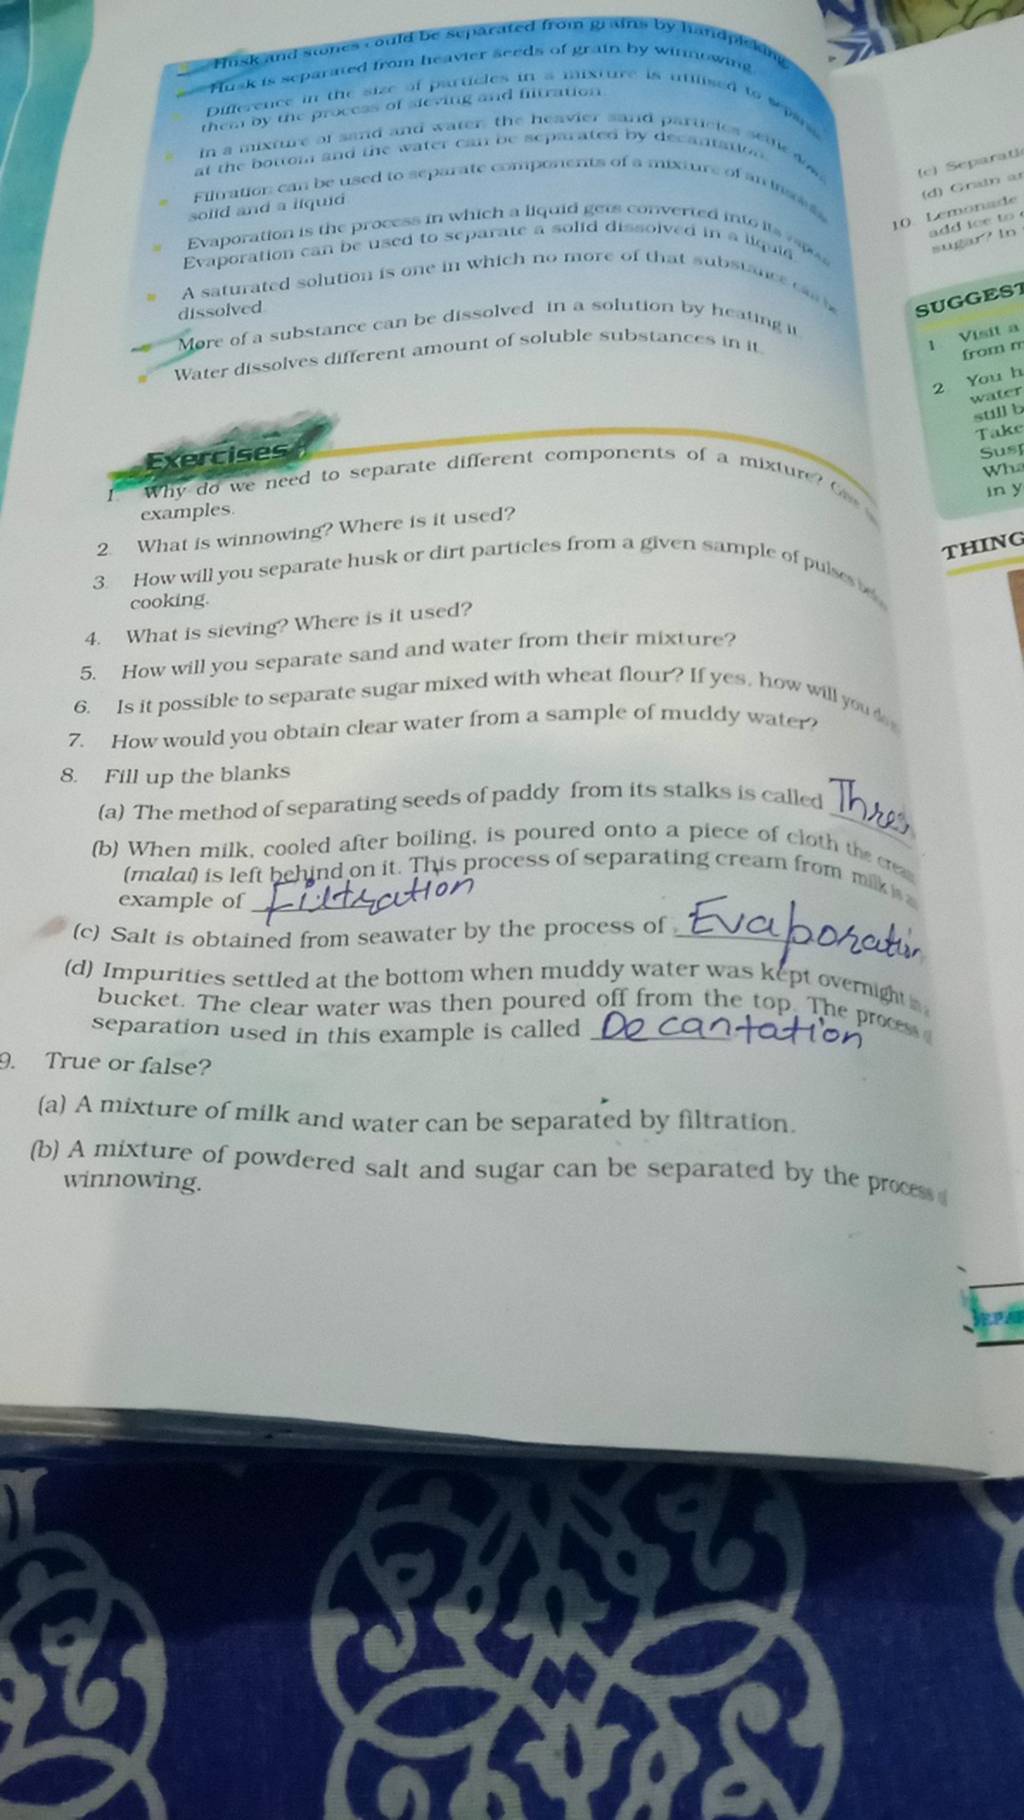 Husk and stones could be separated from grains by handpicking.
Husk is separated from heavier seeds of grain by winnowing.
Difference in the size of particles in a mixture is utilised to separate
them by the process of sieving and filtration.
In a mixture of sand and water, the heavier sand particles settle down
at the bottom and the water can be separated by decantation.
Filtration can be used to separate components of a mixture of an insoluble
solid and a liquid.
Evaporation is the process in which a liquid gets converted into its vapour.
Evaporation can be used to separate a solid dissolved in a liquid.
A saturated solution is one in which no more of that substance can be
dissolved.
More of a substance can be dissolved in a solution by heating it.
Water dissolves different amount of soluble substances in it.
Exercises
1. Why do we need to separate different components of a mixture? Give
examples.
2. What is winnowing? Where is it used?
3. How will you separate husk or dirt particles from a given sample of pulses before
cooking.
4. What is sieving? Where is it used?
5. How will you separate sand and water from their mixture?
6. Is it possible to separate sugar mixed with wheat flour? If yes, how will you do
7. How would you obtain clear water from a sample of muddy water?
8. Fill up the blanks
(a) The method of separating seeds of paddy from its stalks is called Thres
(b) When milk, cooled after boiling, is poured onto a piece of cloth the cream
(malai) is left behind on it. This process of separating cream from milk is an
example of Filtration
(c) Salt is obtained from seawater by the process of Evaporation
(d) Impurities settled at the bottom when muddy water was kept overnight in a
bucket. The clear water was then poured off from the top. The process of
separation used in this example is called Decantation
9. True or false?
(a) A mixture of milk and water can be separated by filtration.
(b) A mixture of powdered salt and sugar can be separated by the process of
winnowing.
(c) Separati
(d) Grain
10. Lemonade
add ice to
sugar? In
SUGGEST
1 Visit a
from
2 You
water
still
Take
in y
THING